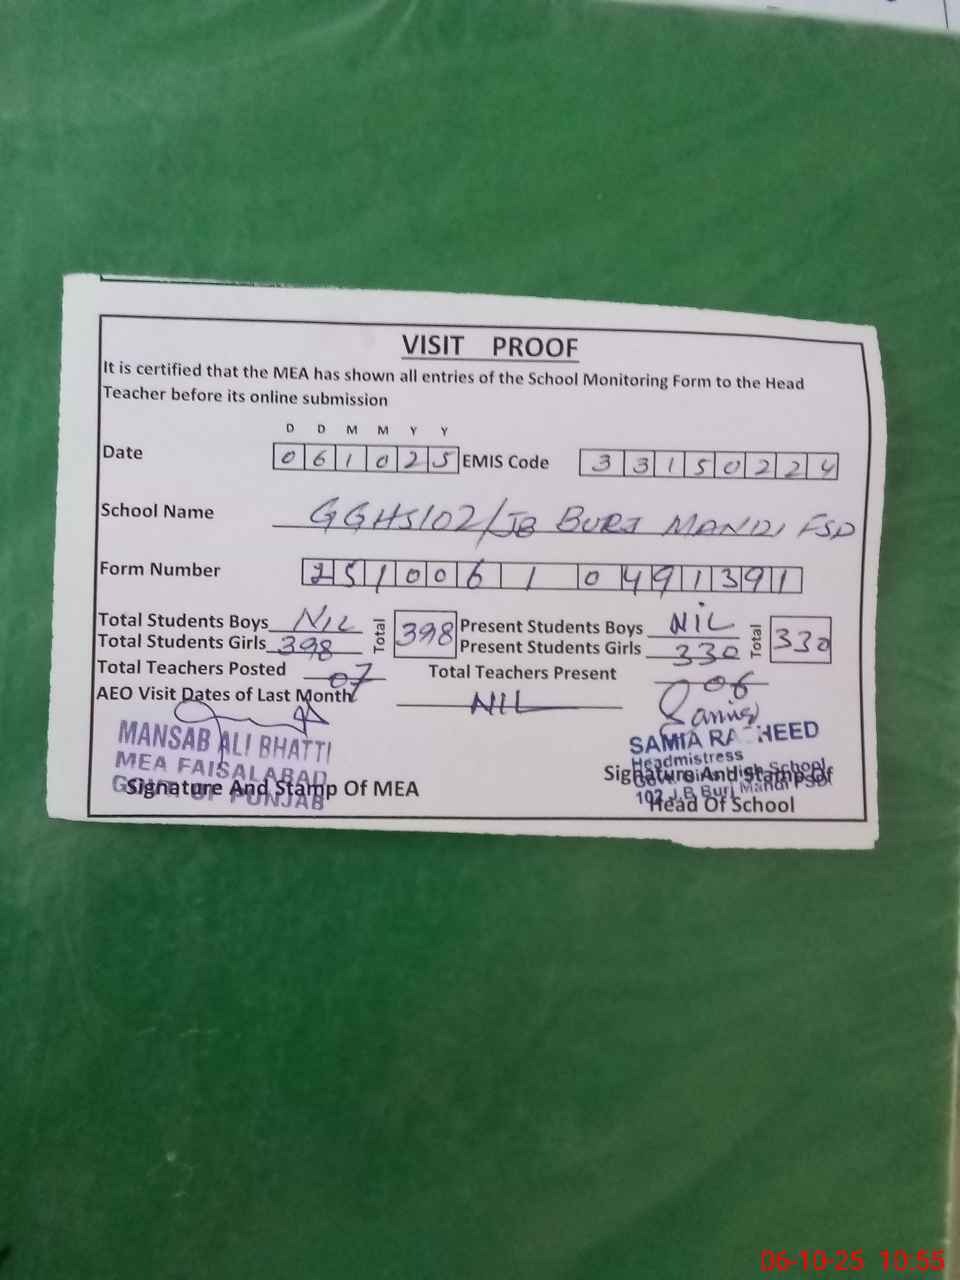 VISIT PROOF
It is certified that the MEA has shown all entries of the School Monitoring Form to the Head
Teacher before its online submission
D D M M Y Y
Date 0 6 1 0 2 5 EMIS Code 3 3 1 5 0 2 2 4
School Name GGHS 102/JB BURJ MANDI FSD
Form Number 2 5 1 0 0 6 1 0 4 9 1 3 9 1
Total Students Boys NIL Total 398 Present Students Boys NIL Total 330
Total Students Girls 398 Present Students Girls 330
Total Teachers Posted 07 Total Teachers Present 06
AEO Visit Dates of Last Month NIL
MANSAB ALI BHATTI
MEA FAISALABAD
GOVT OF PUNJAB
Signature And Stamp Of MEA
SAMIA RASHEED
Headmistress
Govt. Girls High School
102 J.B Burj Mandi FSD
Signature And Stamp Of
Head Of School
06-10-25 10:55